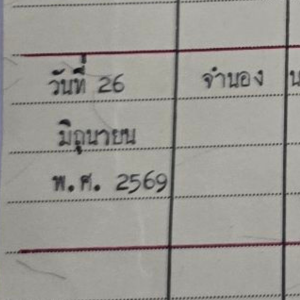 วันที่ 26 จำนอง
มิถุนายน
พ.ศ. 2569